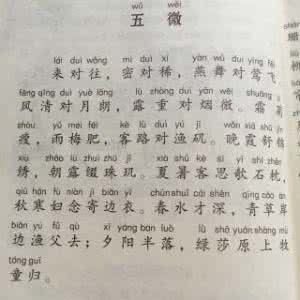 wǔ wēi
五 微
lái duì wǎng mì duì xī yàn wǔ duì yīng fēi
来对往，密对稀，燕舞对莺飞
fēng qīng duì yuè lǎng lù zhòng duì yān wēi shuāng
风清对月朗，露重对烟微。霜菊
shòu yǔ méi féi kè lù duì yú jī wǎn xiá shū jǐn
瘦，雨梅肥，客路对渔矶。晚霞舒锦
xiù zhāo lù zhuì zhū jī xià shǔ kè sī yī shí zhěn
绣，朝露缀珠玑。夏暑客思欹石枕，
qiū hán fù niàn jì biān yī chūn shuǐ cái shēn qīng cǎo àn
秋寒妇念寄边衣。春水才深，青草岸
biān yú fǔ qù xī yáng bàn luò lǜ suō yuán shàng mù
边渔父去；夕阳半落，绿莎原上牧
tóng guī
童归。